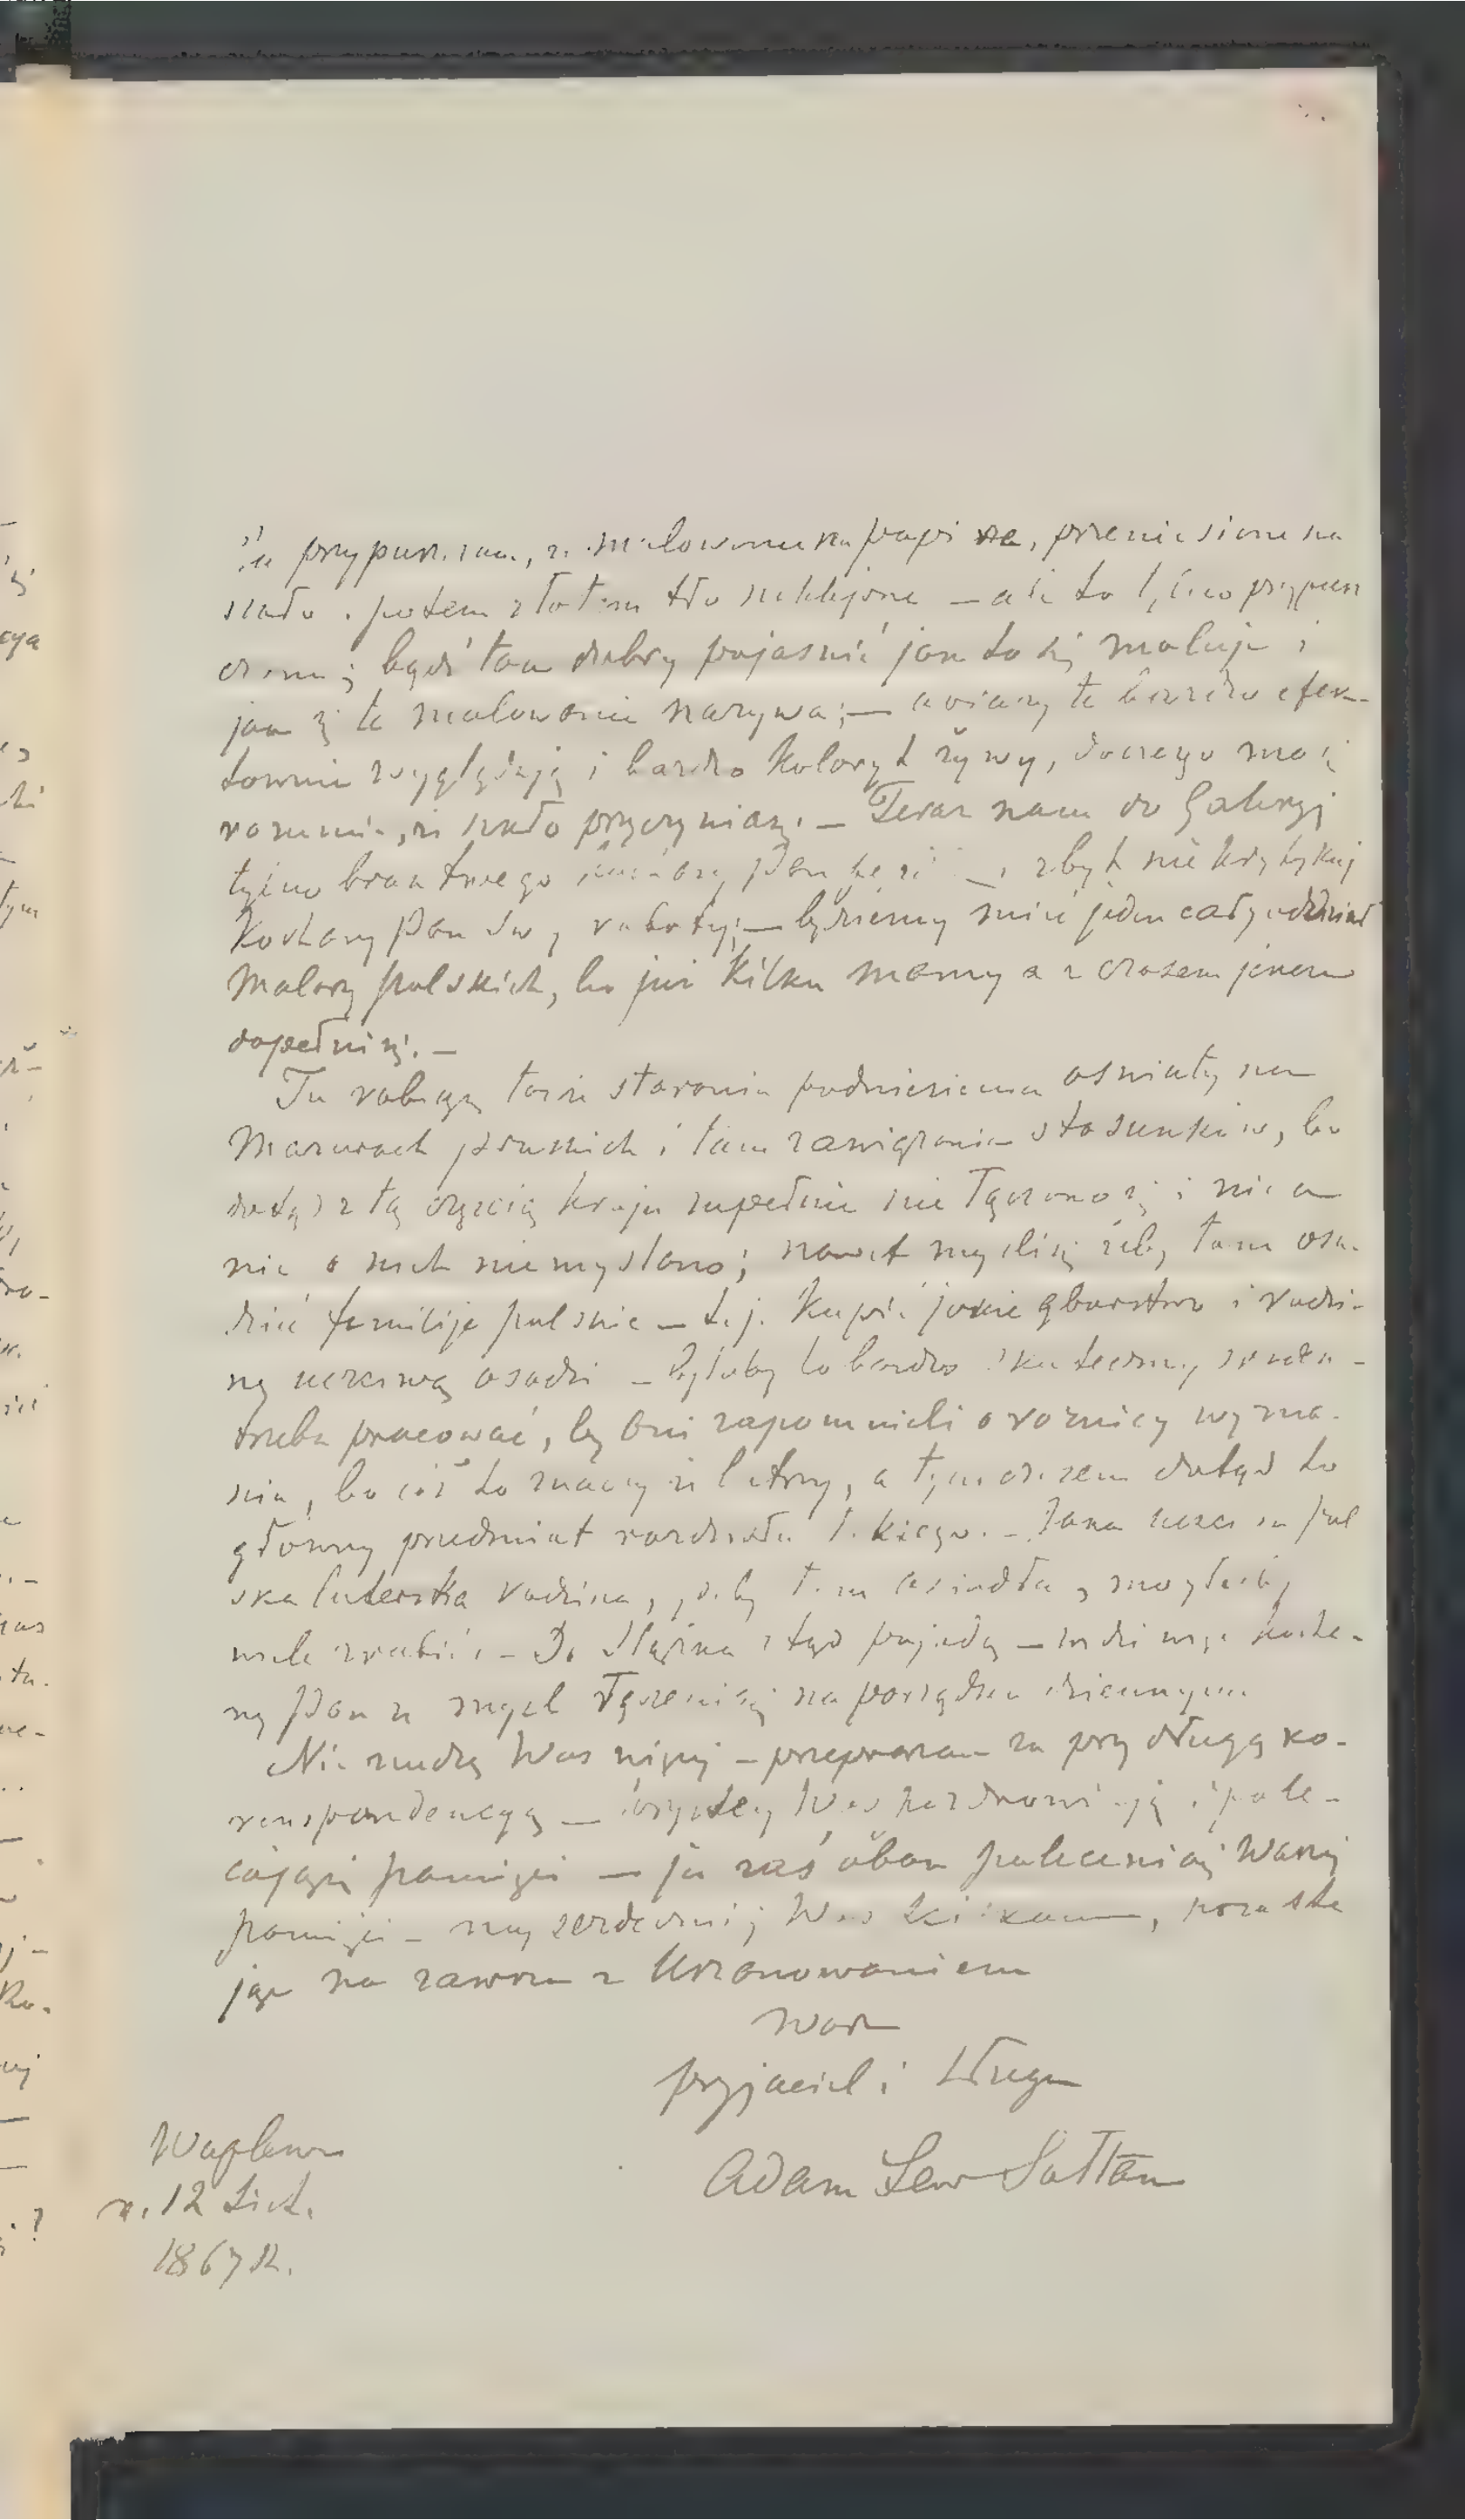 ja przypuszczam, że malowane na papierze, przeniesione na
szkło potem złotem tło naklejone – ale to tylko przypusz
czenie; bądź tam dobry pojaśnić jak to się maluje i
jak się te malowanie nazywa; – obrazy te bardzo efek-
townie wyglądają i bardzo koloryt żywy, do czego może
rozumie, że szkło przyczynia się. – Teraz nam do Galeryj
tylko brak twego Pan zbyt nie krytykuj
Kochany Pan roboty; – będziemy mieć jeden cały oddział
Malarzy polskich, bo już kilku mamy a z czasem jeszcze
dopełni się. –
Tu robię starania podniesienia oświaty na
Mazurach pruskich i tam zawiązania stosunków, bo
dotąd z tą częścią kraju zupełnie nie łączono się i nic a
nic o nich nie myślano; nawet myślę żeby tam osa-
dzić familije polskie – t.j. kupić jakie gburstwo i rodzi-
nę uczciwą osadzić – byłoby to bardzo skuteczny
trzeba pracować, by oni zapomnieli o różnicy wyzna-
nia, bo cóż to znaczy że lutrzy, a tymczasem dotąd to
główny przedmiot rozdziału – Jaka uczciwa pol
ska luterska rodzina, żeby tam osiadła, mogłaby
wiele zrobić. – Do Szląska stąd pojadę – widzi więc kocha-
ny Pan że myśl łączenia się na porządku dziennym
Nie nudzę Was więcej – przepraszam za przydługą ko-
respondencyą – wszyscy Was pozdrawiają i pole-
cają się pamięci – ja zaś obom polecenia się Waszej
pamięci – najserdeczniej Was ściskam, pozosta
jąc na zawsze z Uszanowaniem
Wasz
przyjaciel i sługa
Adam Lew Sołtan
Waplewo
d. 12 List.
1867 R.